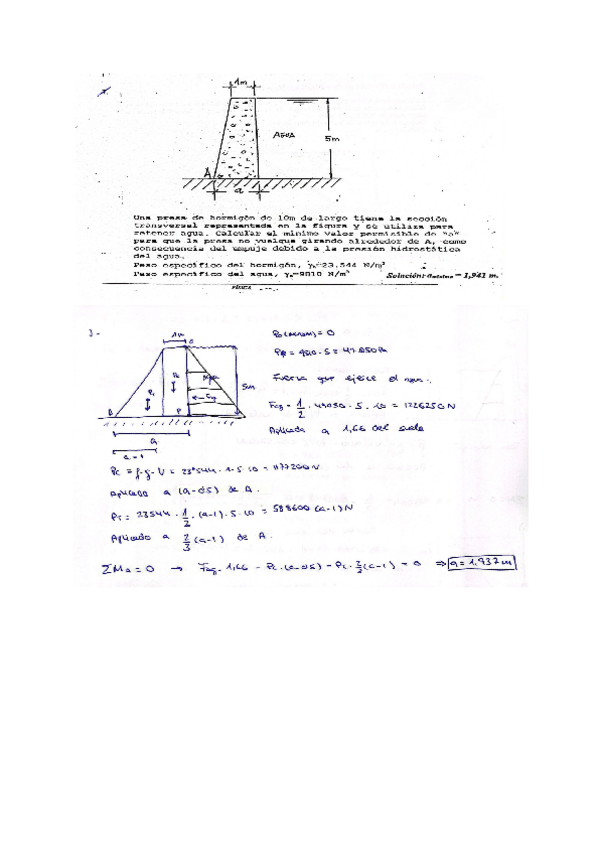 1m
AGUA
5m
A
a
Una presa de hormigón de 10m de largo tiene la sección
transversal representada en la figura y se utiliza para
retener agua. Calcular el mínimo valor permisible de "a"
para que la presa no vuelque girando alrededor de A, como
consecuencia del empuje debido a la presión hidrostática
del agua.
Peso específico del hormigón, γ=23.544 N/m³
Peso específico del agua, γ=9810 N/m³ Solución: = 1,941 m.
FÍSICA
3-
1m
5m
a
a-1
= 0
= 9810 · 5 = 49050 Pa
Fuerza que ejerce el agua:
Fag = 1/2 · 49050 · 5 · 10 = 1226250 N
Aplicada a 1,66 del suelo
Pc = ρ·g·V = 23544 · 1·5·10 = 1177200 N
Aplicado a (a-0'5) de A.
PT = 23544 · 1/2 · (a-1) · 5 · 10 = 588600 (a-1) N
Aplicado a 2/3 (a-1) de A.
ΣMA = 0 → Fag · 1,66 - Pc · (a-0'5) - Pt · 2/3 (a-1) = 0 ⇒ a = 1,937 m